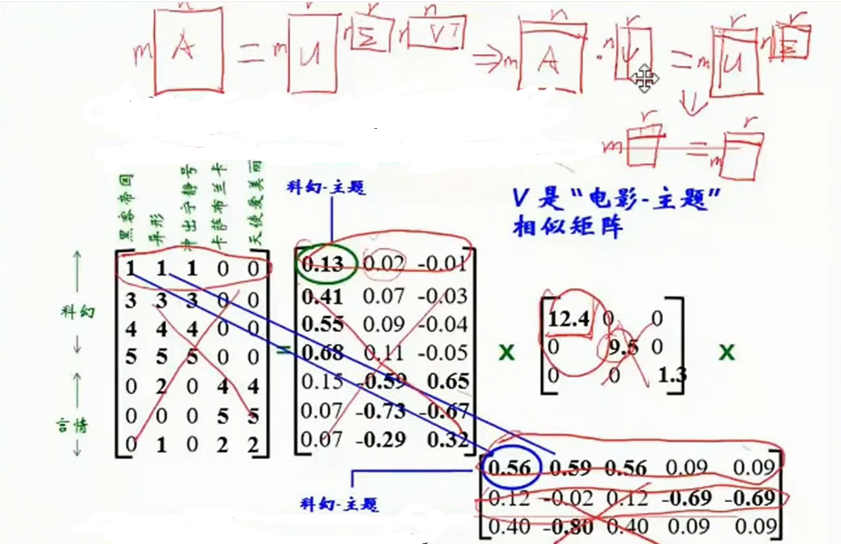 n
r
r
n
n
r
r
r
m A = m U r Σ n VT ⇒ m A · n V = m U n Σ
r
r
m = m
黑客帝国
异形
冲出宁静号
卡萨布兰卡
天使爱美丽
科幻-主题
V 是“电影-主题”
相似矩阵
科幻
言情
1 1 1 0 0
3 3 3 0 0
4 4 4 0 0
5 5 5 0 0
0 2 0 4 4
0 0 0 5 5
0 1 0 2 2
=
0.13 0.02 -0.01
0.41 0.07 -0.03
0.55 0.09 -0.04
0.68 0.11 -0.05
0.15 -0.59 0.65
0.07 -0.73 -0.67
0.07 -0.29 0.32
x
12.4 0 0
0 9.5 0
0 0 1.3
x
0.56 0.59 0.56 0.09 0.09
0.12 -0.02 0.12 -0.69 -0.69
0.40 -0.80 0.40 0.09 0.09
科幻-主题